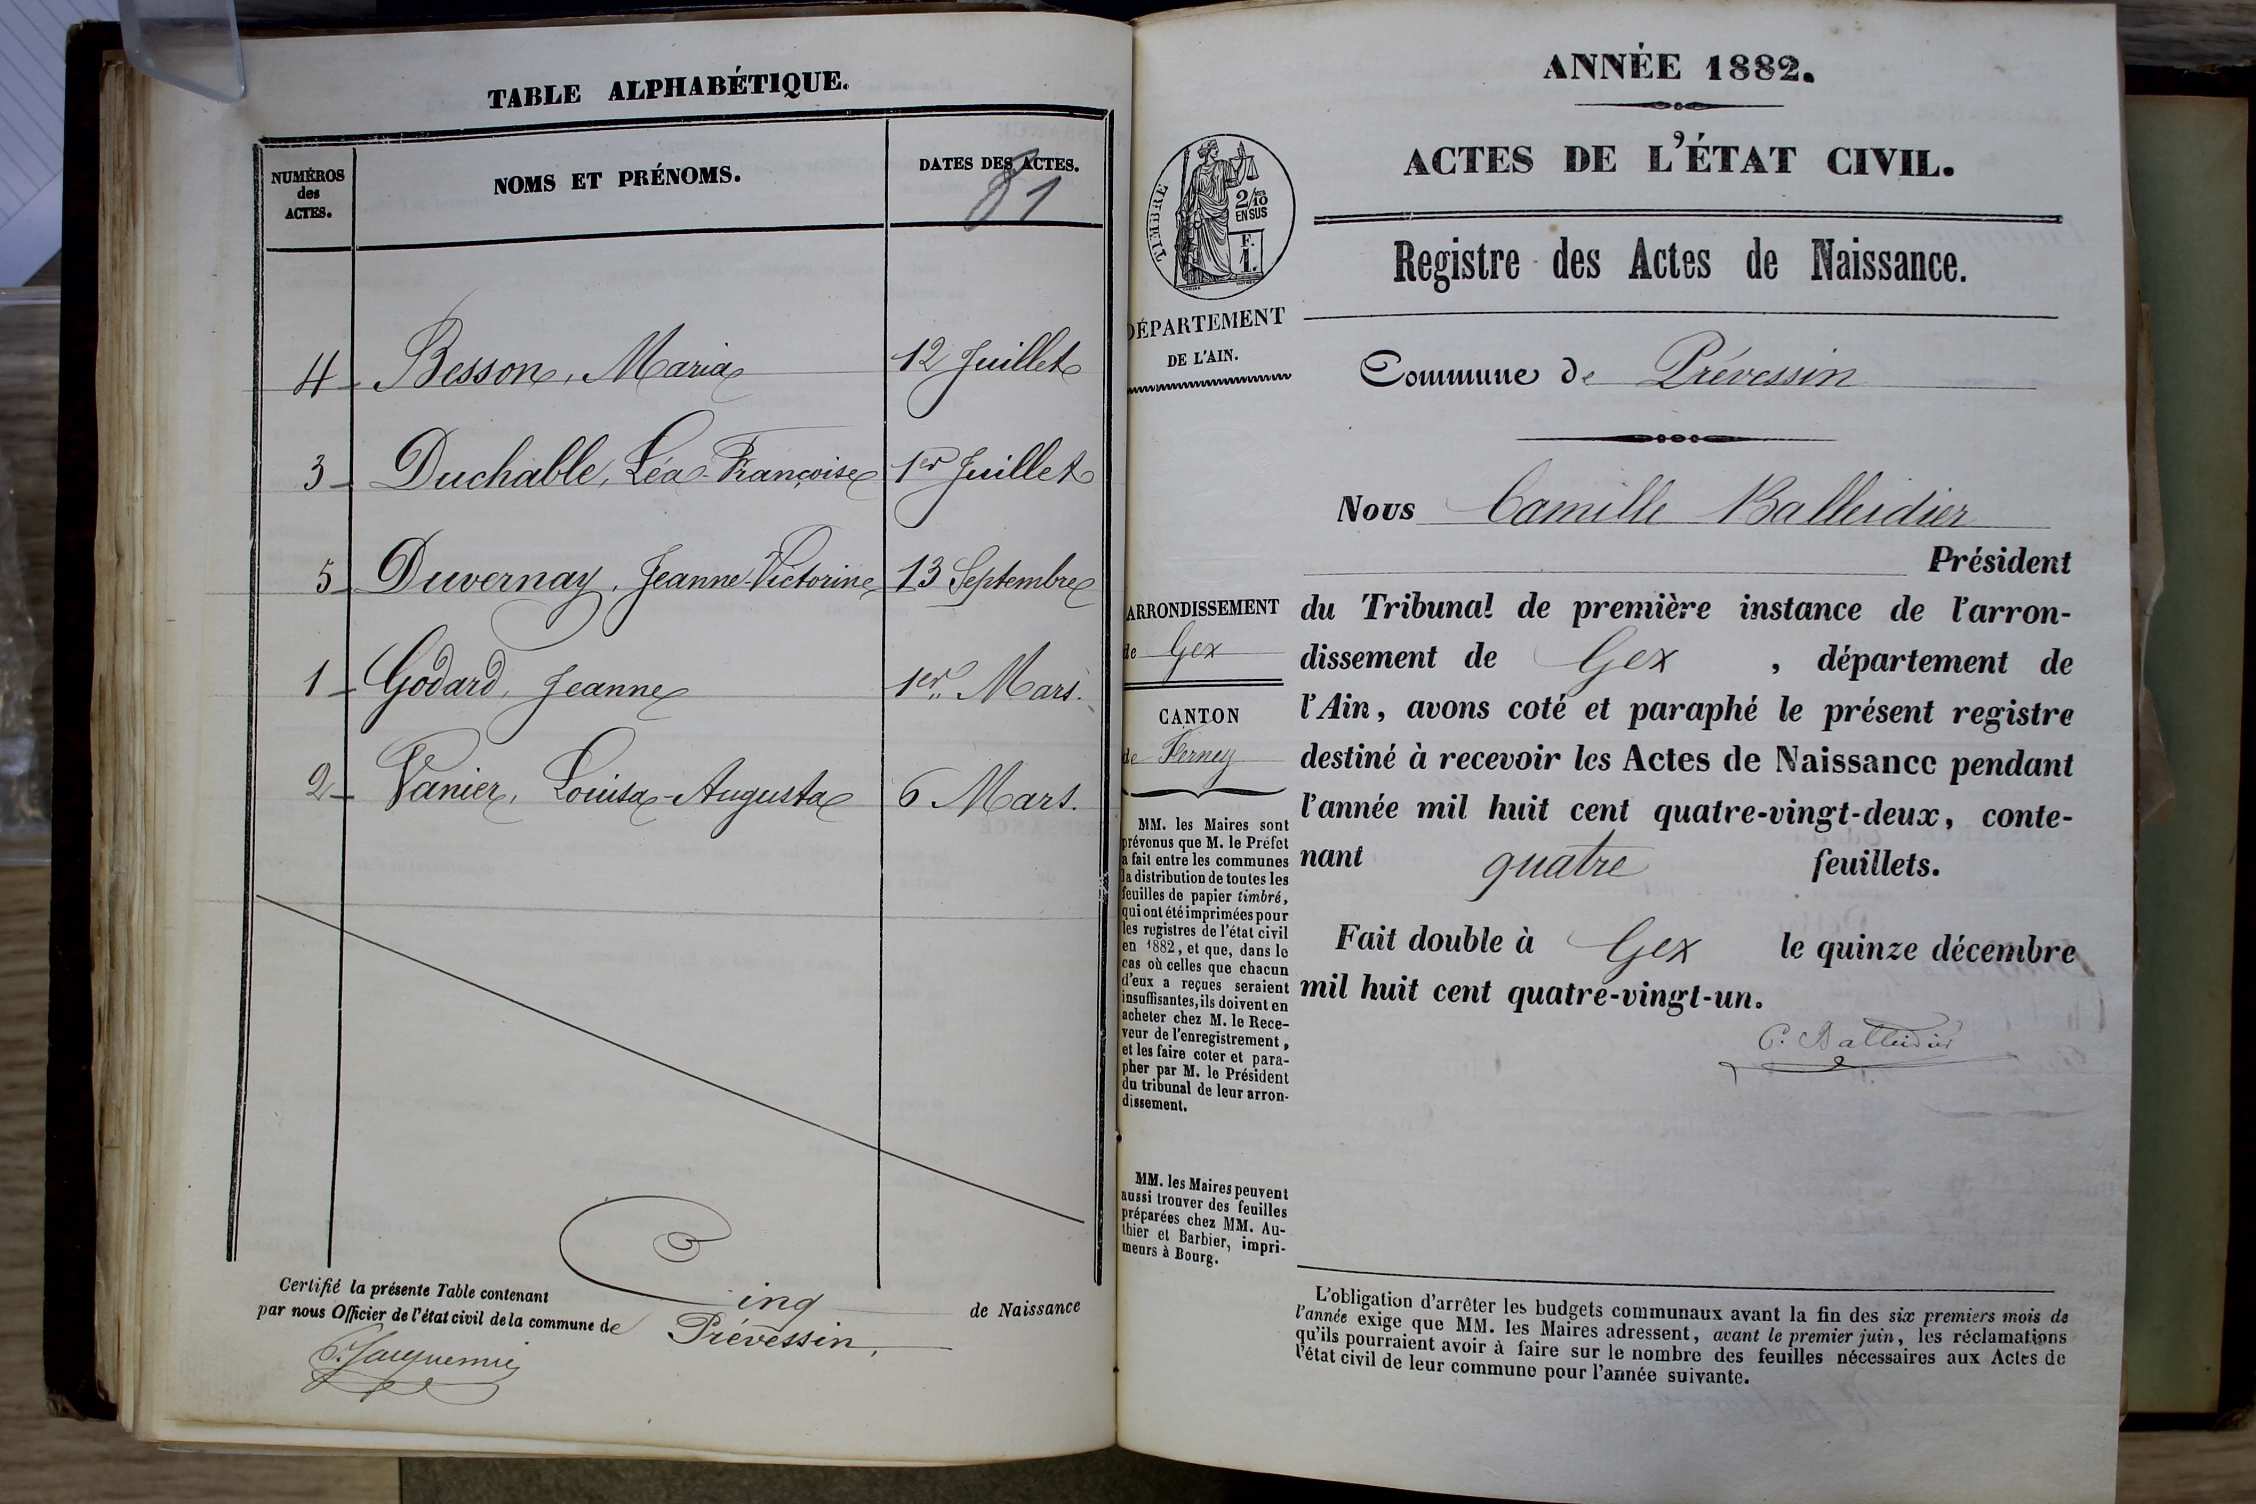 TABLE ALPHABÉTIQUE.
NUMÉROS
des
ACTES.
NOMS ET PRÉNOMS.
DATES DES ACTES.
81
4 Besson, Maria 12 Juillet
3 Duchable, Léa-Françoise 1er Juillet
5 Duvernay, Jeanne-Victorine 13 Septembre
1 Godard, Jeanne 1er Mars.
2 Vanier, Louisa-Augusta 6 Mars.
Certifié la présente Table contenant Cinq de Naissance
par nous Officier de l'état civil de la commune de Prévessin.
ANNÉE 1882.
ACTES DE L'ÉTAT CIVIL.
TIMBRE
2/10
EN SUS
F.
1.
Registre des Actes de Naissance.
DÉPARTEMENT
DE L'AIN.
Commune de Prévessin
Nous Camille Balleidier
Président
du Tribunal de première instance de l'arron-
dissement de Gex, département de
l'Ain, avons coté et paraphé le présent registre
destiné à recevoir les Actes de Naissance pendant
l'année mil huit cent quatre-vingt-deux, conte-
nant quatre feuillets.
Fait double à Gex le quinze décembre
mil huit cent quatre-vingt-un.
C. Balleidier
ARRONDISSEMENT
de Gex
CANTON
de Ferney
MM. les Maires sont
prévenus que M. le Préfet
a fait entre les communes
la distribution de toutes les
feuilles de papier timbré,
qui ont été imprimées pour
les registres de l'état civil
en 1882, et que, dans le
cas où celles que chacun
d'eux a reçues seraient
insuffisantes, ils doivent en
acheter chez M. le Rece-
veur de l'enregistrement,
et les faire coter et para-
pher par M. le Président
du tribunal de leur arron-
dissement.
MM. les Maires peuvent
aussi trouver des feuilles
préparées chez MM. Au-
thier et Barbier, impri-
meurs à Bourg.
L'obligation d'arrêter les budgets communaux avant la fin des six premiers mois de
l'année exige que MM. les Maires adressent, avant le premier juin, les réclamations
qu'ils pourraient avoir à faire sur le nombre des feuilles nécessaires aux Actes de
l'état civil de leur commune pour l'année suivante.